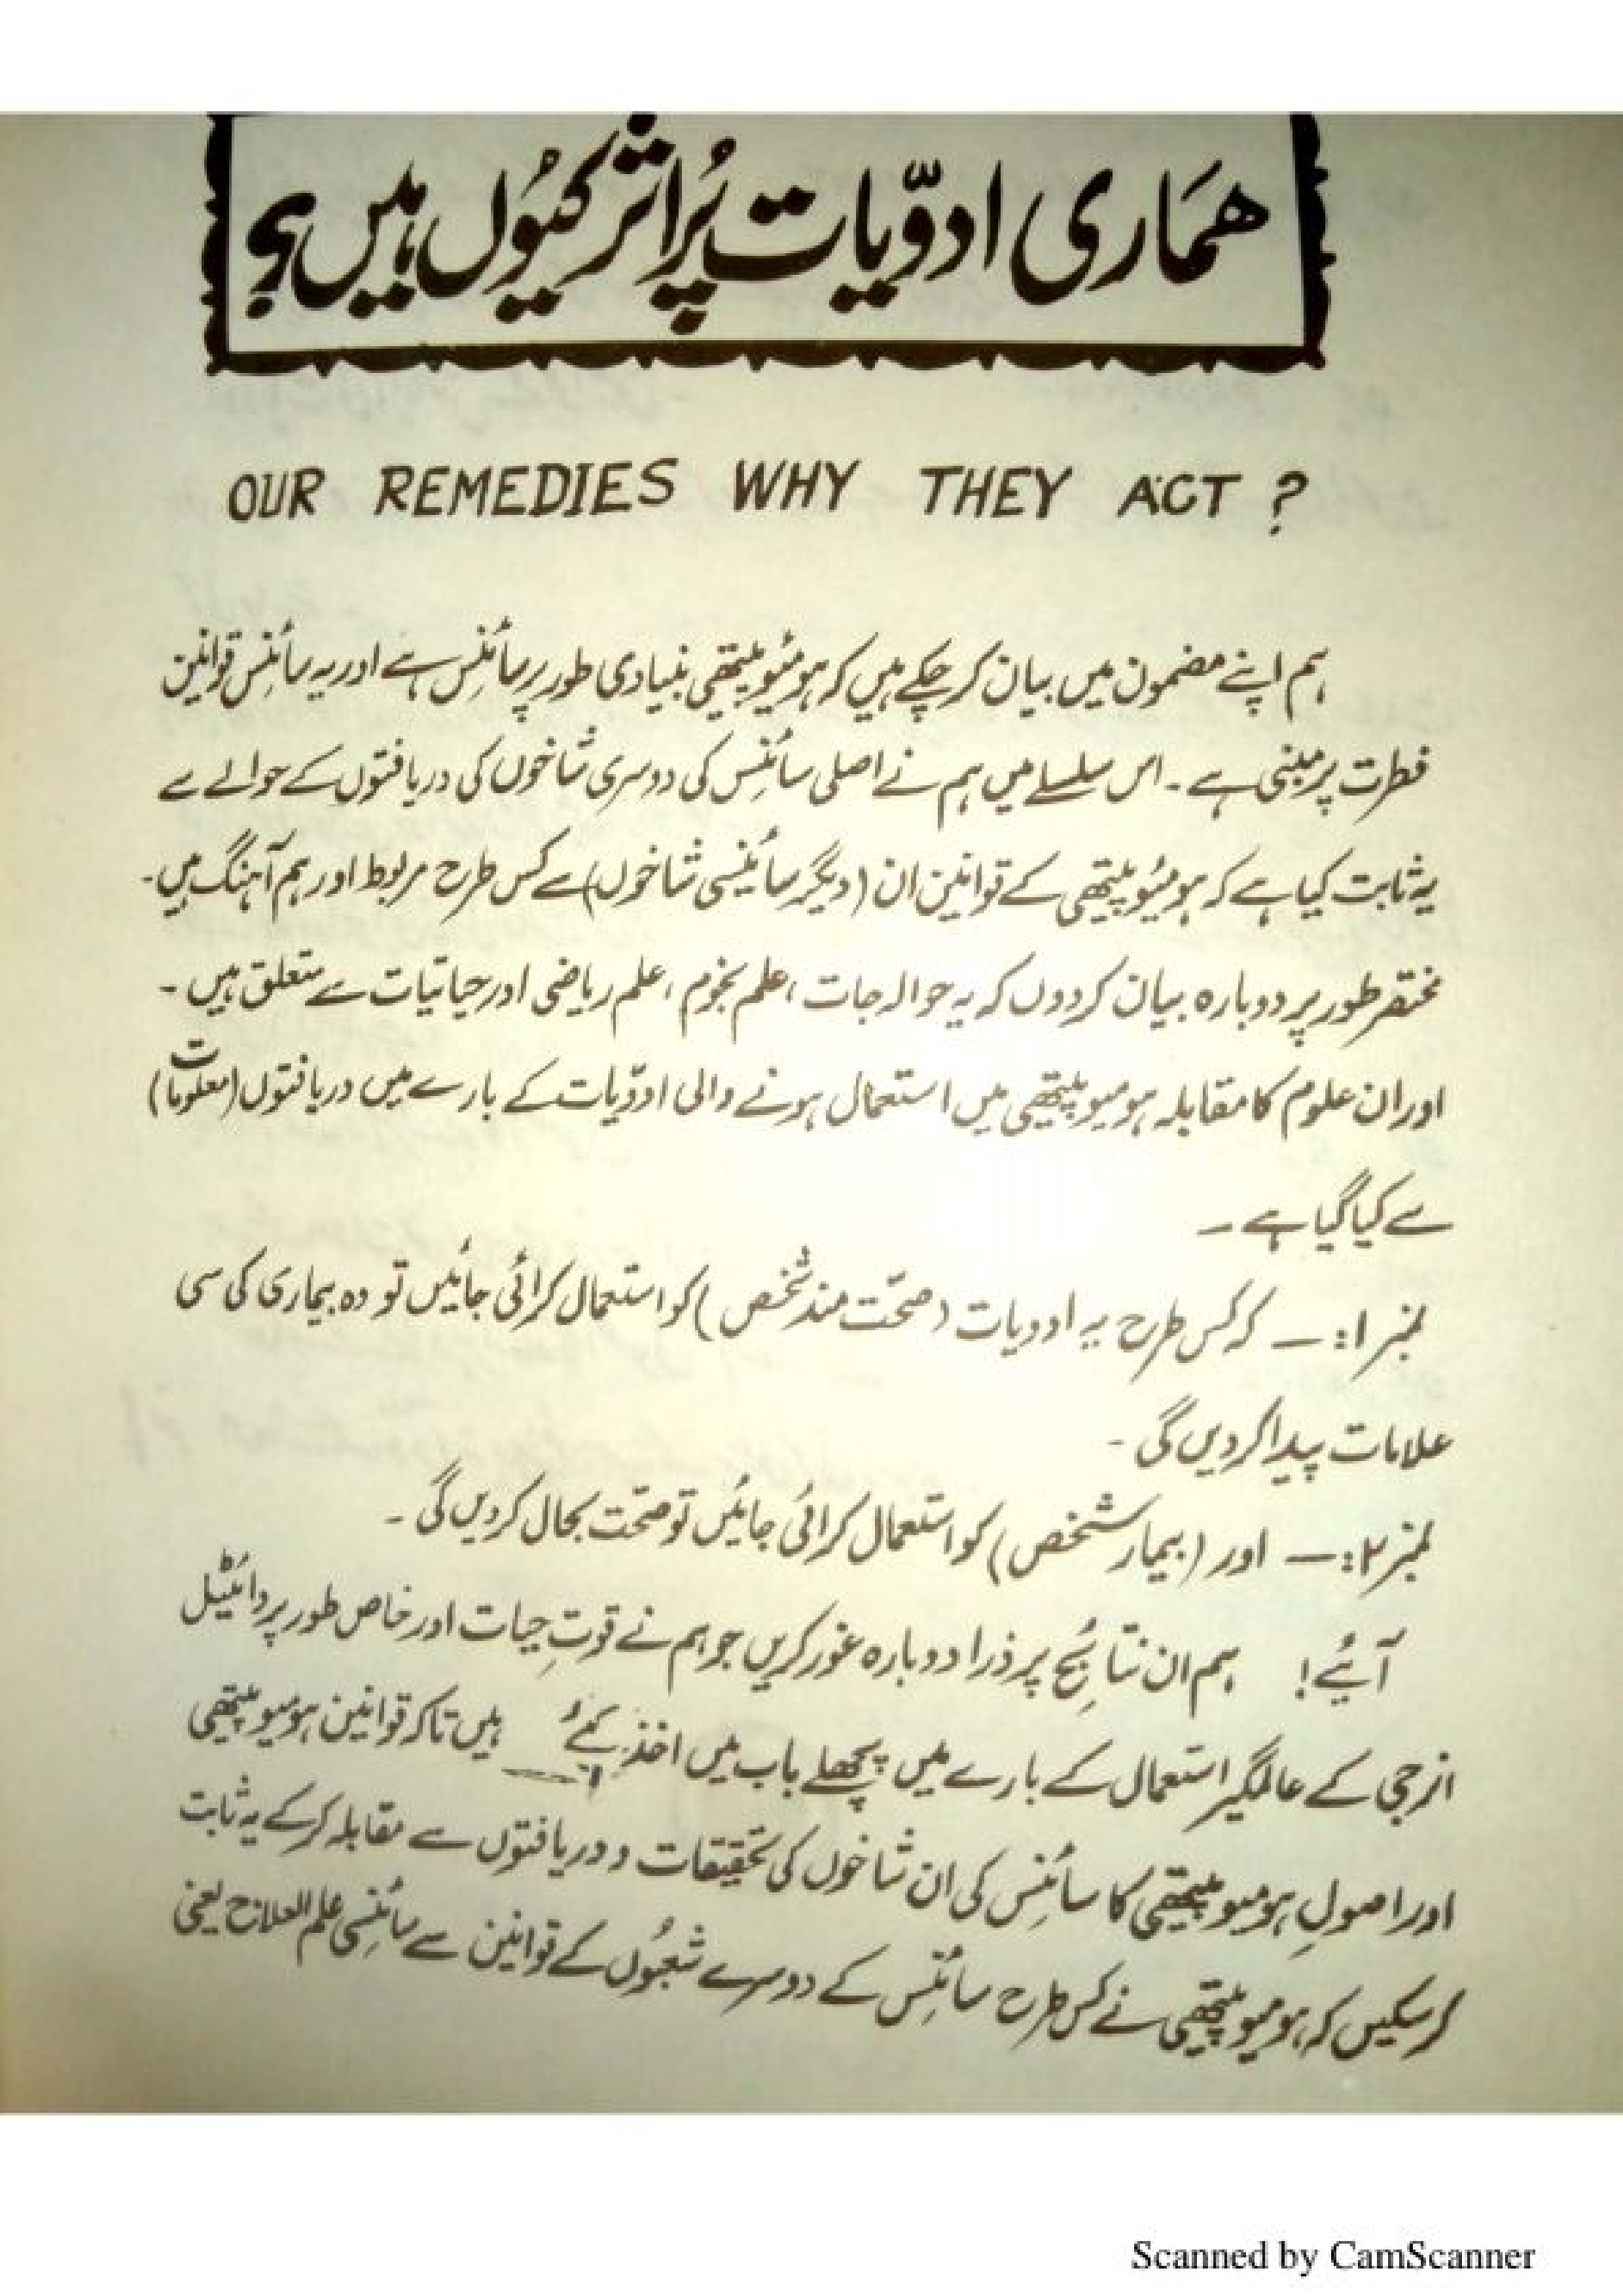 ھمَاری ادوّیات پُراثر کیُوں ہیں؟
OUR REMEDIES WHY THEY ACT ?
ہم اپنے مضمون میں بیان کر چکے ہیں کہ ہومیُوپیتھی بنیادی طور پر سائنس ہے اور یہ سائنس قوانین
فطرت پر مبنی ہے ۔ اس سلسلے میں ہم نے اصلی سائنس کی دوسری شاخوں کی دریافتوں کے حوالے سے
یہ ثابت کیا ہے کہ ہومیُوپیتھی کے قوانین ان (دیگر سائینسی شاخوں) سے کس طرح مربوط اور ہم آہنگ ہیں۔
مختصر طور پر دوبارہ بیان کردوں کہ یہ حوالہ جات ، علم نجوم ، علم ریاضی اور حیاتیات سے متعلق ہیں ۔
اور ان علوم کا مقابلہ ہومیوپیتھی میں استعمال ہونے والی ادوّیات کے بارے میں دریافتوں (معلومات)
سے کیا گیا ہے ۔
نمبر ۱:۔ کہ کس طرح یہ ادویات (صحّت مند شخص) کو استعمال کرائی جائیں تو وہ بیماری کی سی
علامات پیدا کردیں گی ۔
نمبر ۲:۔ اور (بیمار شخص) کو استعمال کرائی جائیں تو صحّت بحال کردیں گی ۔
آئیے! ہم ان نتائج پر ذرا دوبارہ غور کریں جو ہم نے قوتِ حیات اور خاص طور پر وائیٹل
انرجی کے عالمگیر استعمال کے بارے میں پچھلے باب میں اخذ کئے ہیں تاکہ قوانین ہومیوپیتھی
اور اصولِ ہومیوپیتھی کا سائنس کی ان شاخوں کی تحقیقات و دریافتوں سے مقابلہ کرکے یہ ثابت
کرسکیں کہ ہومیوپیتھی نے کس طرح سائنس کے دوسرے شعبُوں کے قوانین سے سائنسی علم العلاج یعنی
Scanned by CamScanner